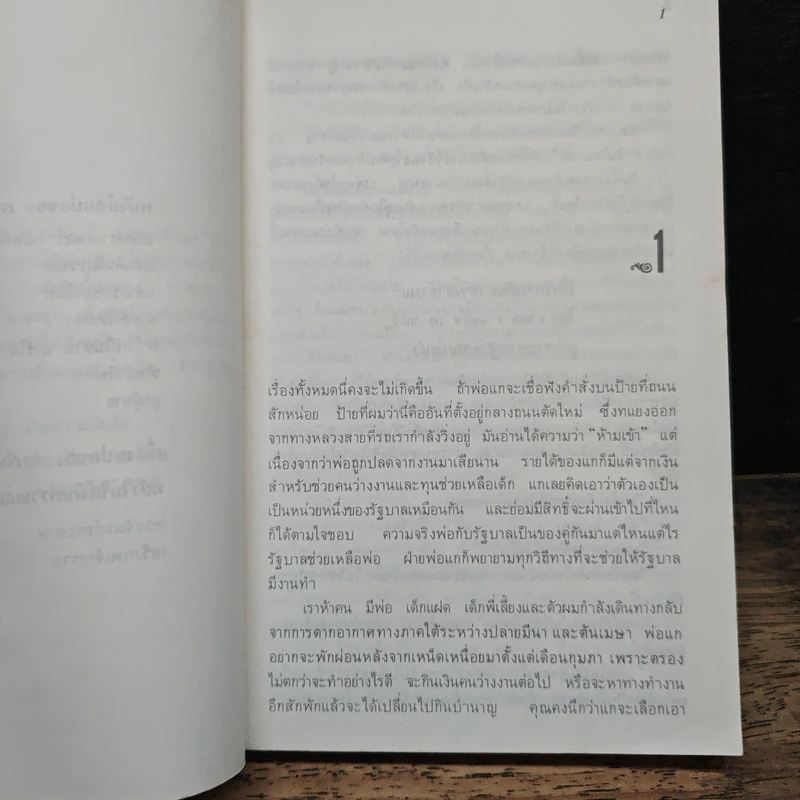 1
๑
1
เรื่องทั้งหมดนี่คงจะไม่เกิดขึ้น ถ้าพ่อแกจะเชื่อฟังคำสั่งบนป้ายที่ถนน
สักหน่อย ป้ายที่ผมว่านี่คืออันที่ตั้งอยู่กลางถนนตัดใหม่ ซึ่งทแยงออก
จากทางหลวงสายที่รถเรากำลังวิ่งอยู่ มันอ่านได้ความว่า “ห้ามเข้า” แต่
เนื่องจากว่าพ่อถูกปลดจากงานมาเสียนาน รายได้ของแกก็มีแต่จากเงิน
สำหรับช่วยคนว่างงานและทุนช่วยเหลือเด็ก แกเลยคิดเอาว่าตัวเองเป็น
เป็นหน่วยหนึ่งของรัฐบาลเหมือนกัน และย่อมมีสิทธิ์จะผ่านเข้าไปที่ไหน
ก็ได้ตามใจชอบ ความจริงพ่อกับรัฐบาลเป็นของคู่กันมาแต่ไหนแต่ไร
รัฐบาลช่วยเหลือพ่อ ฝ่ายพ่อแกก็พยายามทุกวิถีทางที่จะช่วยให้รัฐบาล
มีงานทำ
เราห้าคน มีพ่อ เด็กแฝด เด็กพี่เลี้ยงและตัวผมกำลังเดินทางกลับ
จากการตากอากาศทางภาคใต้ระหว่างปลายมีนา และต้นเมษา พ่อแก
อยากจะพักผ่อนหลังจากเหน็ดเหนื่อยมาตั้งแต่เดือนกุมภา เพราะตรอง
ไม่ตกว่าจะทำอย่างไรดี จะกินเงินคนว่างงานต่อไป หรือจะหาทางทำงาน
อีกสักพักแล้วจะได้เปลี่ยนไปกินบำนาญ คุณคงนึกว่าแกจะเลือกเอา